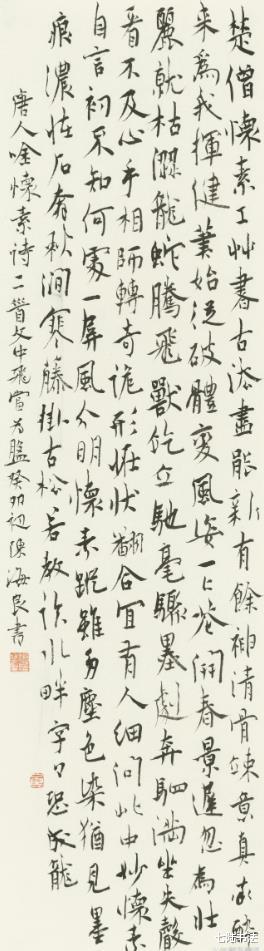 楚僧懷素工艸書古法盡能新有餘神清骨竦意真率醉
來為我揮健筆始從破體變風姿一一花開春景遲忽為壯
麗就枯澀龍蛇騰飛獸屹立馳毫驟墨劇奔駟滿坐失聲
看不及心手相師轉奇詭形怪狀翻合宜有人細問此中妙懷素
自言初不知何處一屏風分明懷素蹤雖多塵色染猶見墨
痕濃怪石奔秋澗寒藤掛古松若教臨水畔字字恐成龍
唐人咏懷素詩二首文中飛宜為盤癸卯初陳海良書